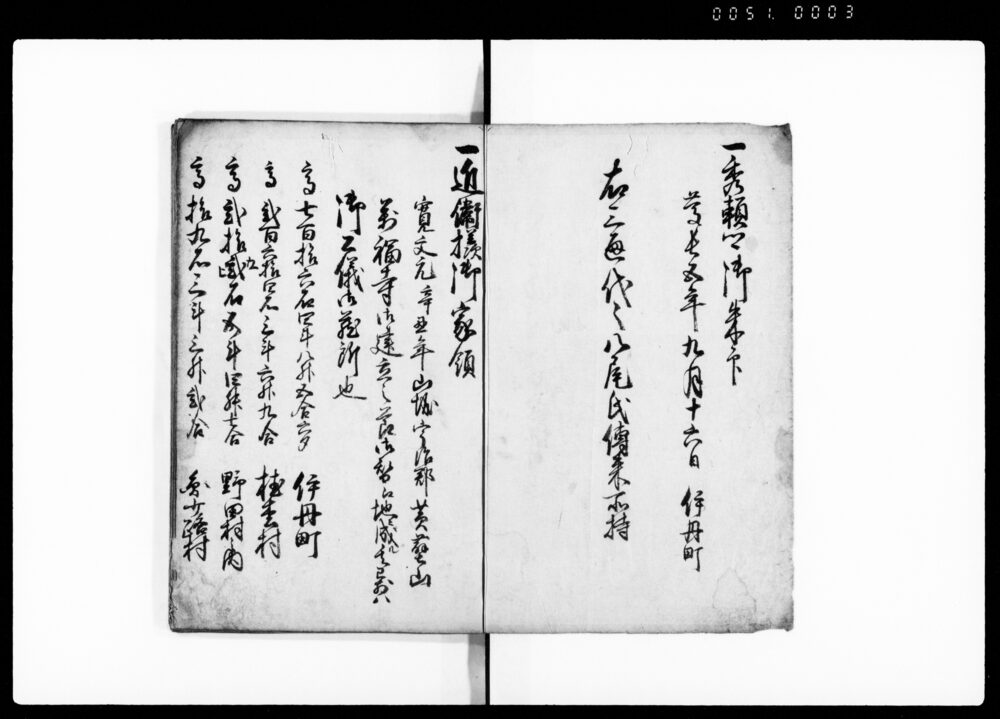 0051.0003
一秀頼公御朱印
慶長五年九月十六日 伊丹町
右三通代々八尾氏傳来所持
一近衛様御家領
寛文元辛丑年山城宇治郡黄檗山
萬福寺御建立之節御替地ニ成其已前ハ
御公儀御蔵所也
高七百拾六石四斗八升五合六夕 伊丹町
高弐百六拾四石三斗六升九合 植松村
高弐拾九石五斗四升七合 野田村内
高拾九石三斗三升弐合 村